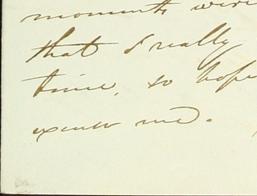 moments were
that I really
time, so hope
excuse me.